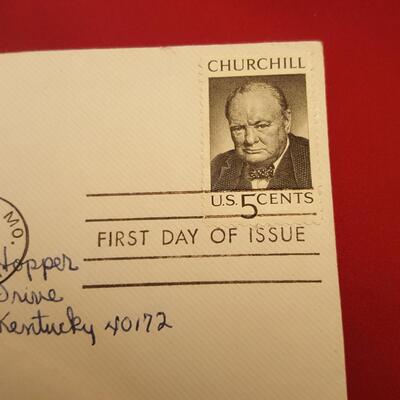 CHURCHILL
U.S. 5 CENTS
FIRST DAY OF ISSUE
MO.
Hopper
Drive
Kentucky 40172